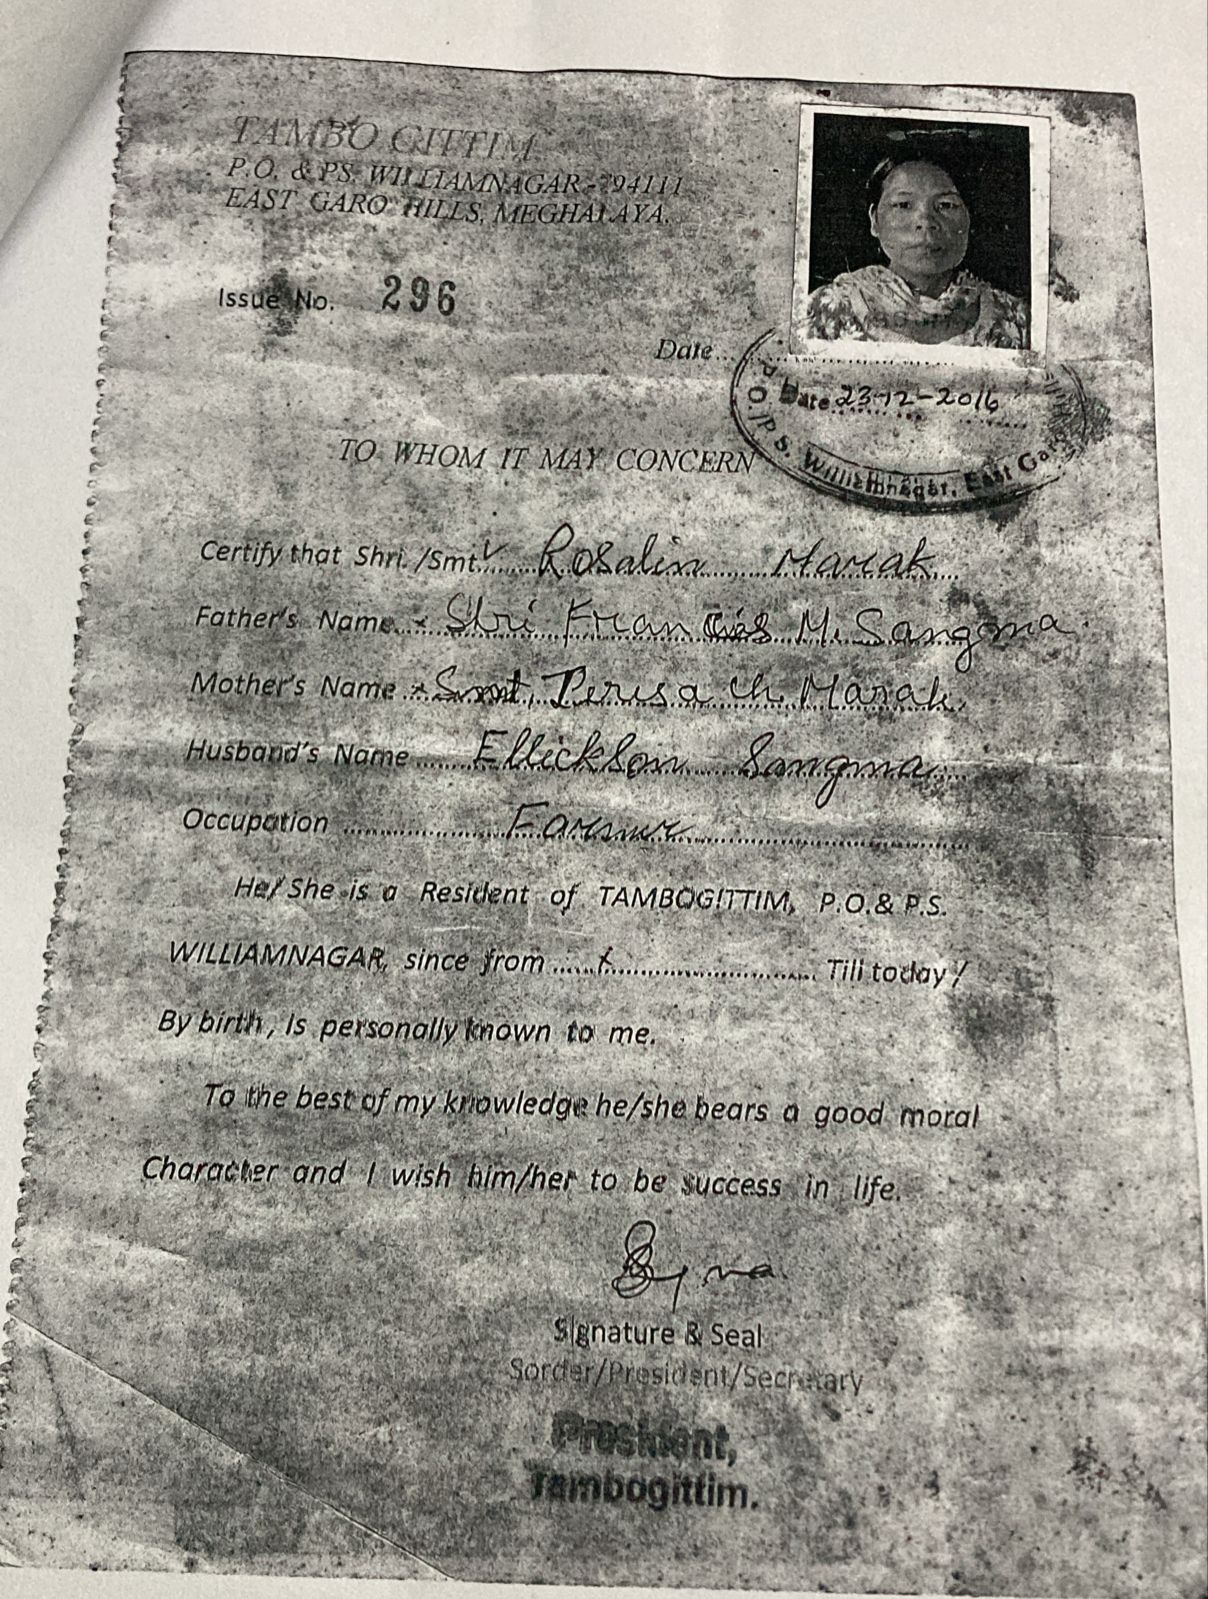 TAMBO GITTIM
P.O. & PS. WILLIAMNAGAR - 794111
EAST GARO HILLS, MEGHALAYA.
Issue No. 296
Date
Date 23-12-2016
P.O./P.S. Williamnagar, East Garo
TO WHOM IT MAY CONCERN
Certify that Shri./Smt. Rosalin Marak
Father's Name Shri Francis M. Sangma
Mother's Name Smt. Ch. Marak
Husband's Name Ellickson Sangma
Occupation Farmer
He/She is a Resident of TAMBOGITTIM, P.O.& P.S.
WILLIAMNAGAR, since from x Till today/
By birth, Is personally known to me.
To the best of my knowledge he/she bears a good moral
Character and I wish him/her to be success in life.
Signature & Seal
Sorder/President/Secretary
President,
Tambogittim.